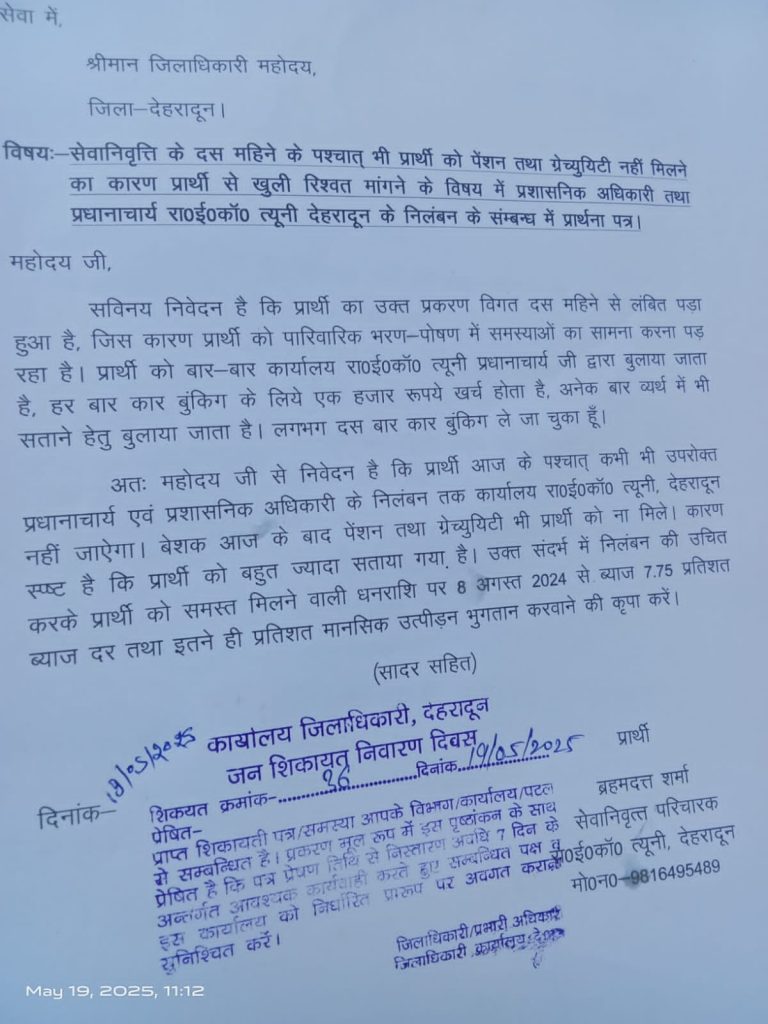 सेवा में,
श्रीमान जिलाधिकारी महोदय,
जिला–देहरादून।
विषयः–सेवानिवृत्ति के दस महिने के पश्चात् भी प्रार्थी को पेंशन तथा ग्रेच्युयिटी नहीं मिलने
का कारण प्रार्थी से खुली रिश्वत मांगने के विषय में प्रशासनिक अधिकारी तथा
प्रधानाचार्य रा0ई0कॉ0 त्यूनी देहरादून के निलंबन के संम्बन्ध में प्रार्थना पत्र।
महोदय जी,
सविनय निवेदन है कि प्रार्थी का उक्त प्रकरण विगत दस महिने से लंबित पड़ा
हुआ है, जिस कारण प्रार्थी को पारिवारिक भरण–पोषण में समस्याओं का सामना करना पड़
रहा है। प्रार्थी को बार–बार कार्यालय रा0ई0कॉ0 त्यूनी प्रधानाचार्य जी द्वारा बुलाया जाता
है, हर बार कार बुंकिग के लिये एक हजार रूपये खर्च होता है, अनेक बार व्यर्थ में भी
सताने हेतु बुलाया जाता है। लगभग दस बार कार बुंकिग ले जा चुका हूँ।
अतः महोदय जी से निवेदन है कि प्रार्थी आज के पश्चात् कभी भी उपरोक्त
प्रधानाचार्य एवं प्रशासनिक अधिकारी के निलंबन तक कार्यालय रा0ई0कॉ0 त्यूनी, देहरादून
नहीं जाऐगा। बेशक आज के बाद पेंशन तथा ग्रेच्युयिटी भी प्रार्थी को ना मिले। कारण
स्प्ष्ट है कि प्रार्थी को बहुत ज्यादा सताया गया है। उक्त संदर्भ में निलंबन की उचित
करके प्रार्थी को समस्त मिलने वाली धनराशि पर 8 अगस्त 2024 से ब्याज 7.75 प्रतिशत
ब्याज दर तथा इतने ही प्रतिशत मानसिक उत्पीड़न भुगतान करवाने की कृपा करें।
(सादर सहित)
दिनांक– 19/05/2025
कार्यालय जिलाधिकारी, देहरादून
जन शिकायत निवारण दिवस
शिकयत क्रमांक-....36....दिनांक 19/05/2025
प्रेषित-
प्राप्त शिकायती पत्र/समस्या आपके विभाग/कार्यालय/पटल
से सम्बन्धित है। प्रकरण मूल रूप में इस पृष्ठांकन के साथ
प्रेषित है कि पत्र प्रेषण तिथि से निस्तारण अवधि 7 दिन के
अन्तर्गत आवश्यक कार्यवाही करते हुए सम्बन्धित पक्ष व
इस कार्यालय को निर्धारित प्रारूप पर अवगत कराना
सुनिश्चित करें।
जिलाधिकारी/प्रभारी अधिकारी
जिलाधिकारी कार्यालय
प्रार्थी
ब्रहमदत्त शर्मा
सेवानिवृत्त परिचारक
रा0ई0कॉ0 त्यूनी, देहरादून
मो0न0–9816495489
May 19, 2025, 11:12